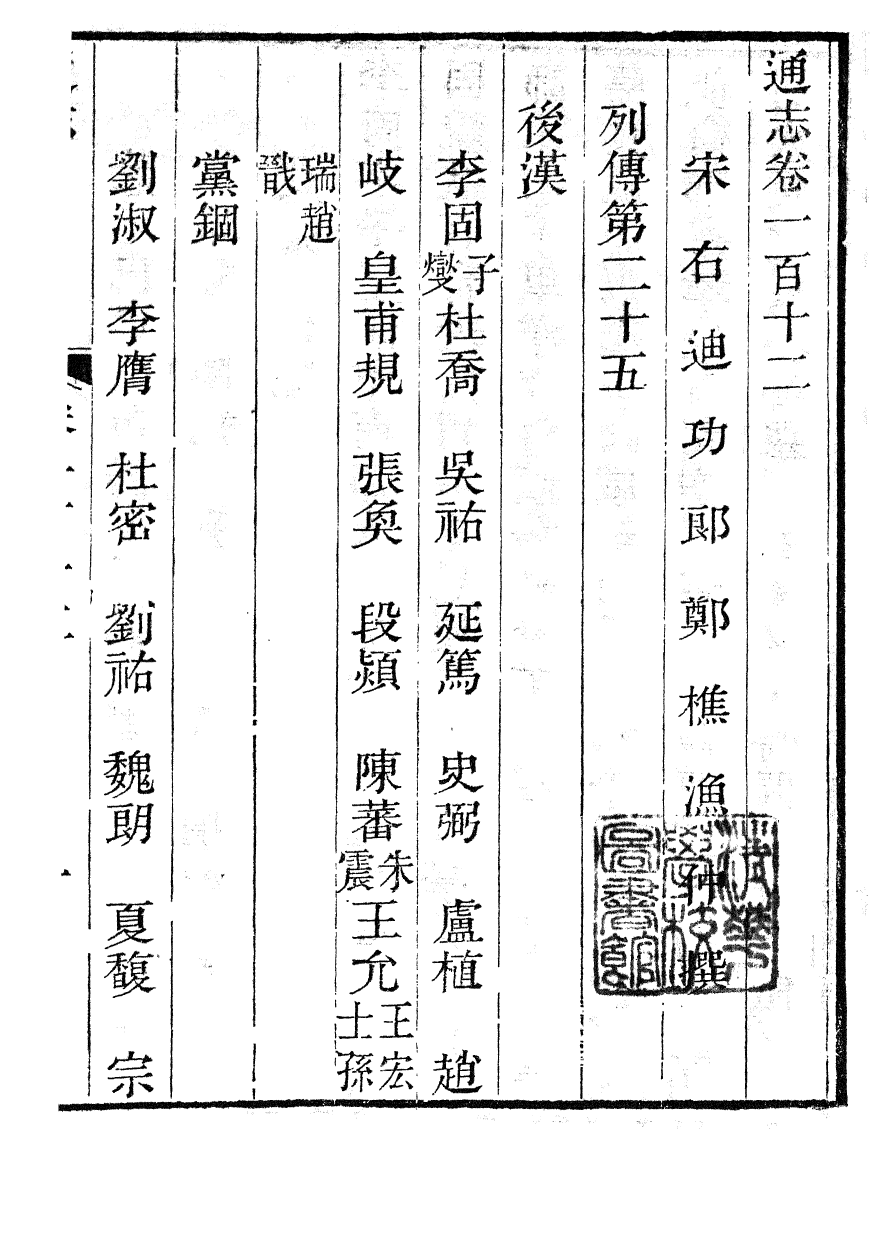 通志卷一百十二
宋右迪功郎鄭樵漁仲撰
列傳第二十五
後漢
李固子燮杜喬 吳祐 延篤 史弼 盧植 趙
岐 皇甫規 張奐 段熲 陳蕃朱震王允王宏士孫
瑞趙戩
黨錮
劉淑 李膺 杜密 劉祐 魏朗 夏馥 宗
清華學校圖書館